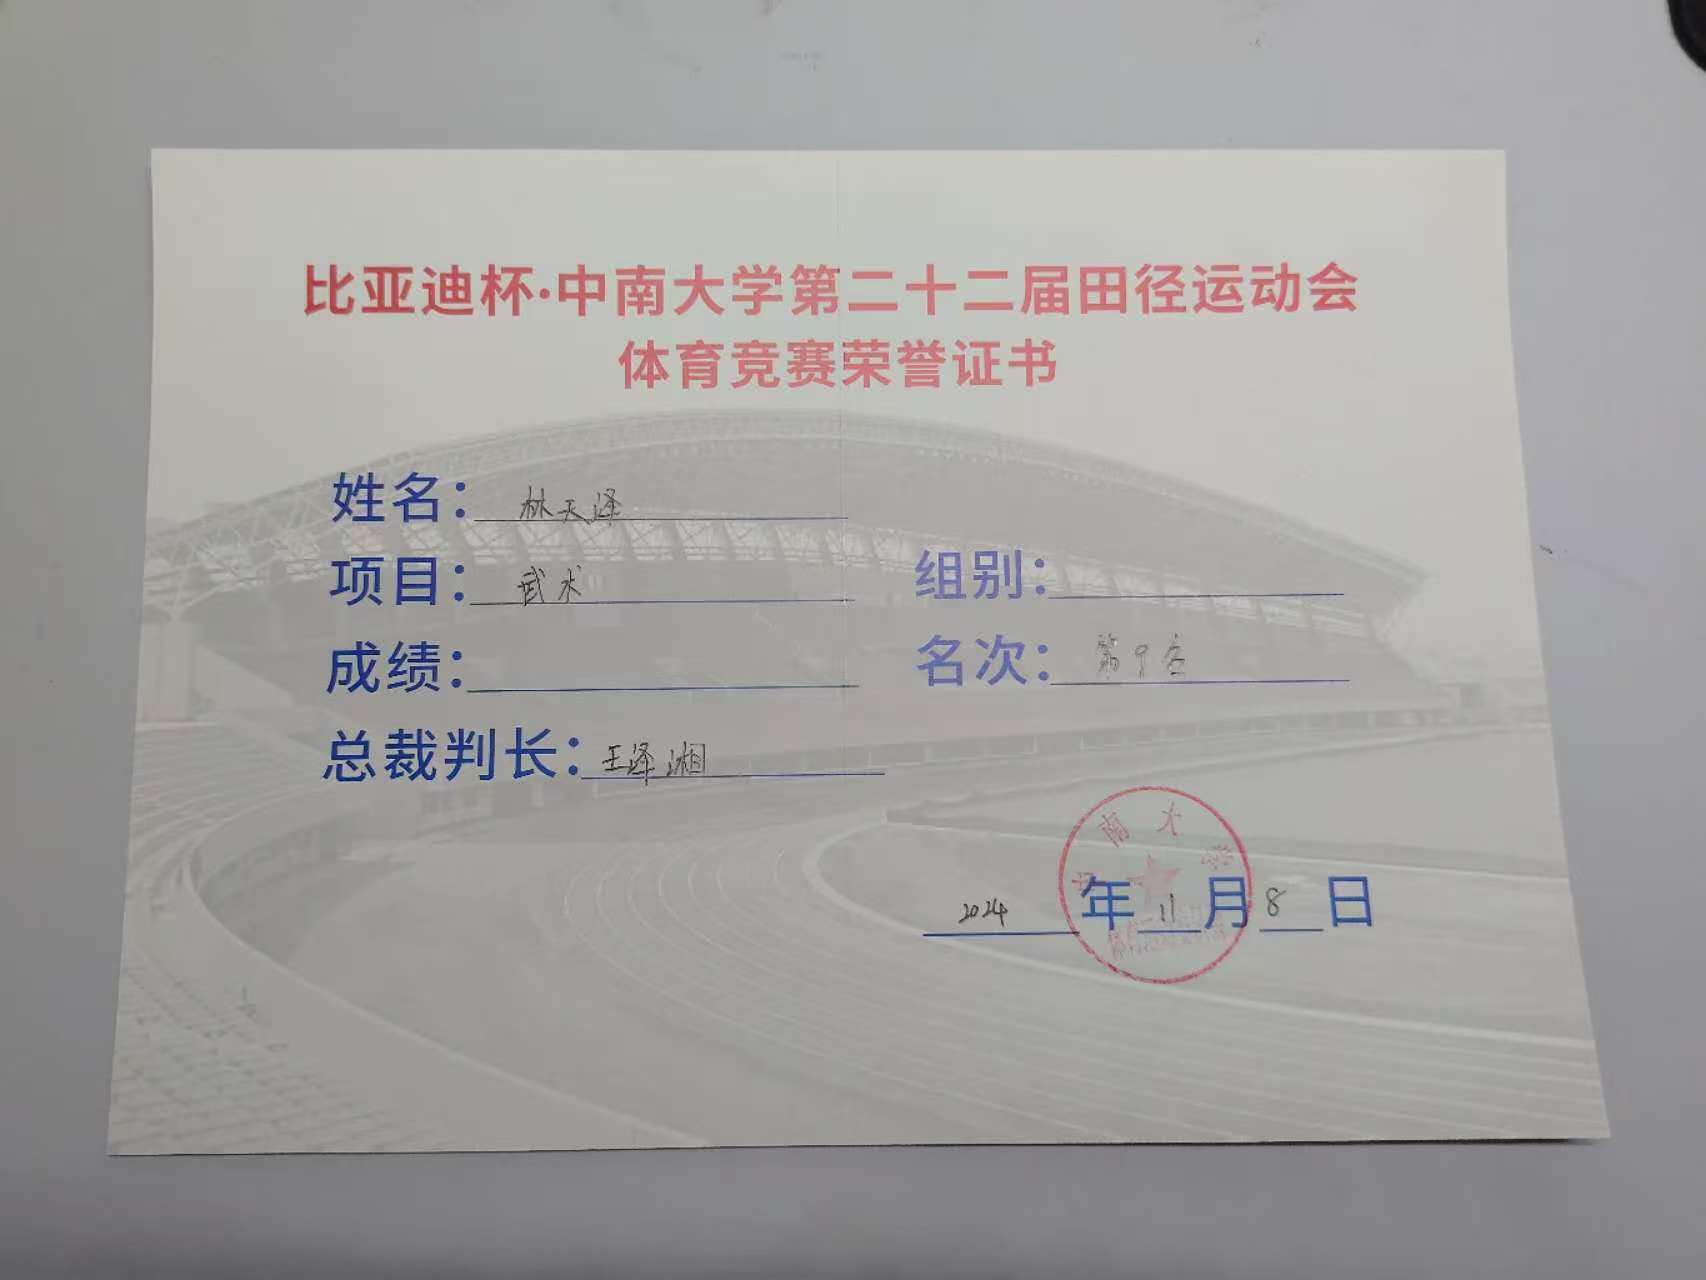 比亚迪杯·中南大学第二十二届田径运动会
体育竞赛荣誉证书
姓名：林天泽
项目：武术 组别：
成绩： 名次：第9名
总裁判长：王泽湘
中南大学
2024年11月8日